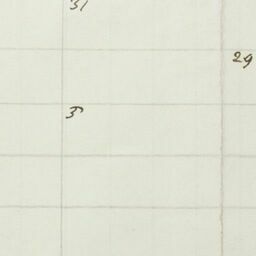 31
29
5